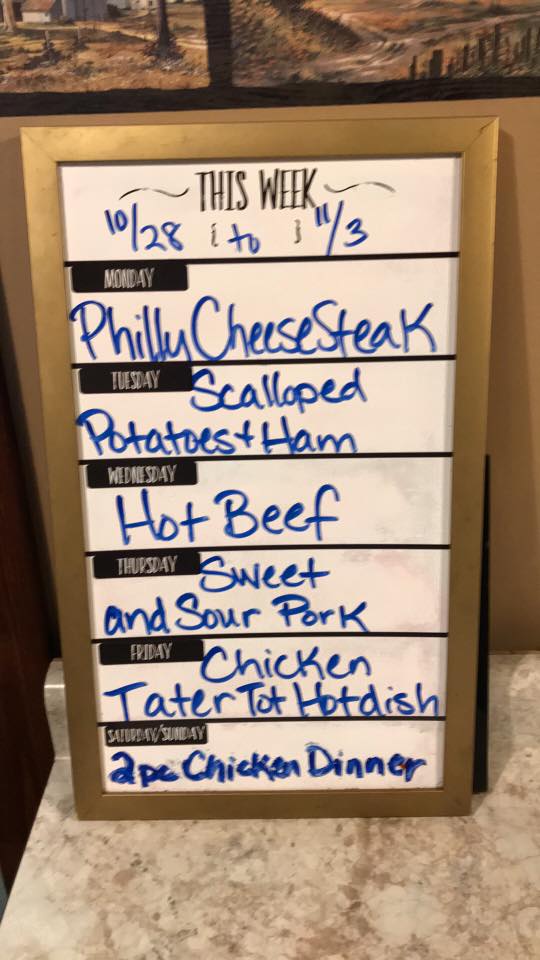 THIS WEEK
10/28 { to } 11/3
MONDAY
Philly Cheese Steak
TUESDAY
Scalloped
Potatoes + Ham
WEDNESDAY
Hot Beef
THURSDAY
Sweet
and Sour Pork
FRIDAY
Chicken
Tater Tot Hotdish
SATURDAY/SUNDAY
2pc Chicken Dinner